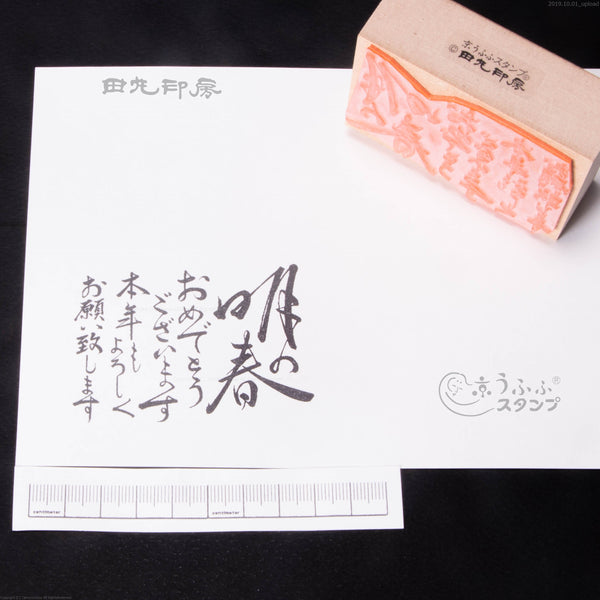 2019.10.01_upload
京うふふスタンプ®
© 田丸印房
田丸印房
明の春
おめでとう
ございます
本年もよろしく
お願い致します
京うふふ®
スタンプ
centimeter
centimeter